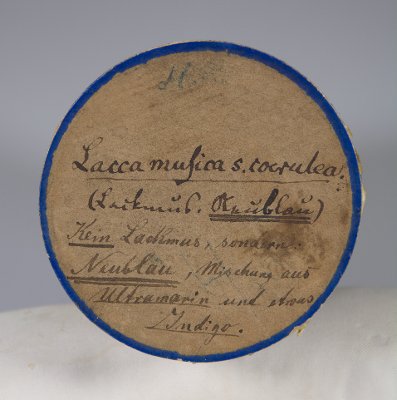 Lacca musica s. coerulea.
(Lackmus. Neublau)
Kein Lackmus, sondern
Neublau, Mischung aus
Ultramarin und etwas
Indigo.